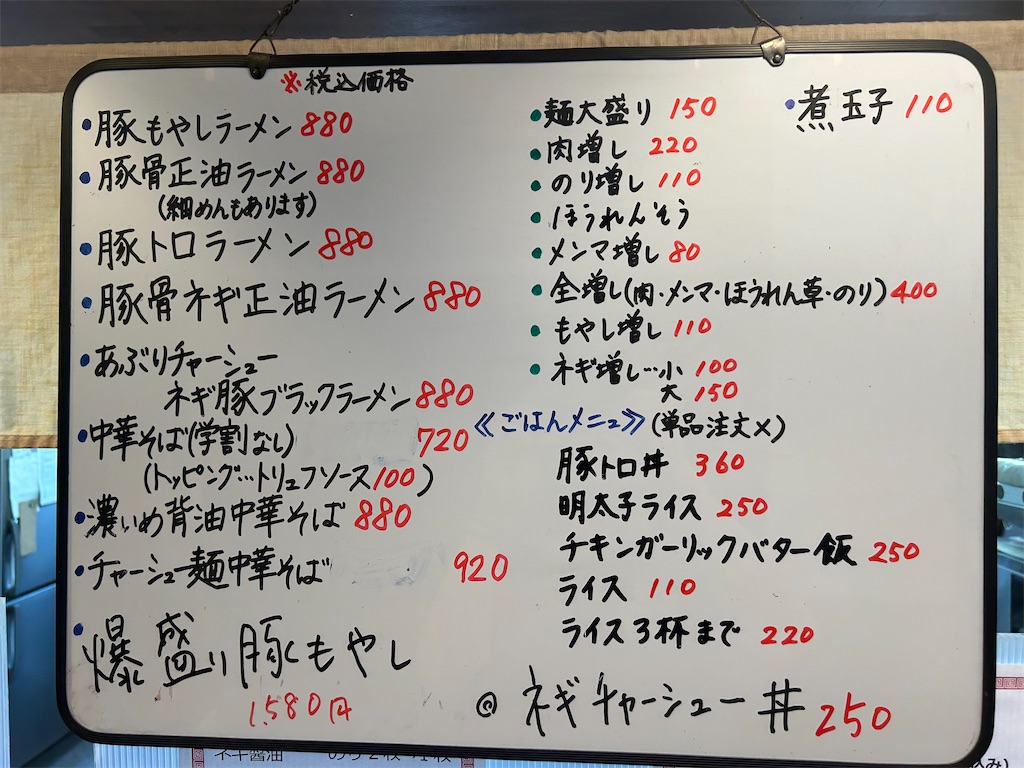 ※税込価格
・豚もやしラーメン 880
・豚骨正油ラーメン 880
(細めんもあります)
・豚トロラーメン 880
・豚骨ネギ正油ラーメン 880
・あぶりチャーシュー
ネギ豚ブラックラーメン 880
・中華そば(学割なし) 720
(トッピング…トリュフソース100)
・濃いめ背油中華そば 880
・チャーシュー麺中華そば 920
・爆盛り豚もやし
1,580円
・麺大盛り 150
・肉増し 220
・のり増し 110
・ほうれんそう
・メンマ増し 80
・全増し(肉・メンマ・ほうれん草・のり) 400
・もやし増し 110
・ネギ増し…小 100
大 150
・煮玉子 110
≪ごはんメニュー≫(単品注文×)
豚トロ丼 360
明太子ライス 250
チキンガーリックバター飯 250
ライス 110
ライス3杯まで 220
◎ネギチャーシュー丼 250
ネギ醤油
込み)